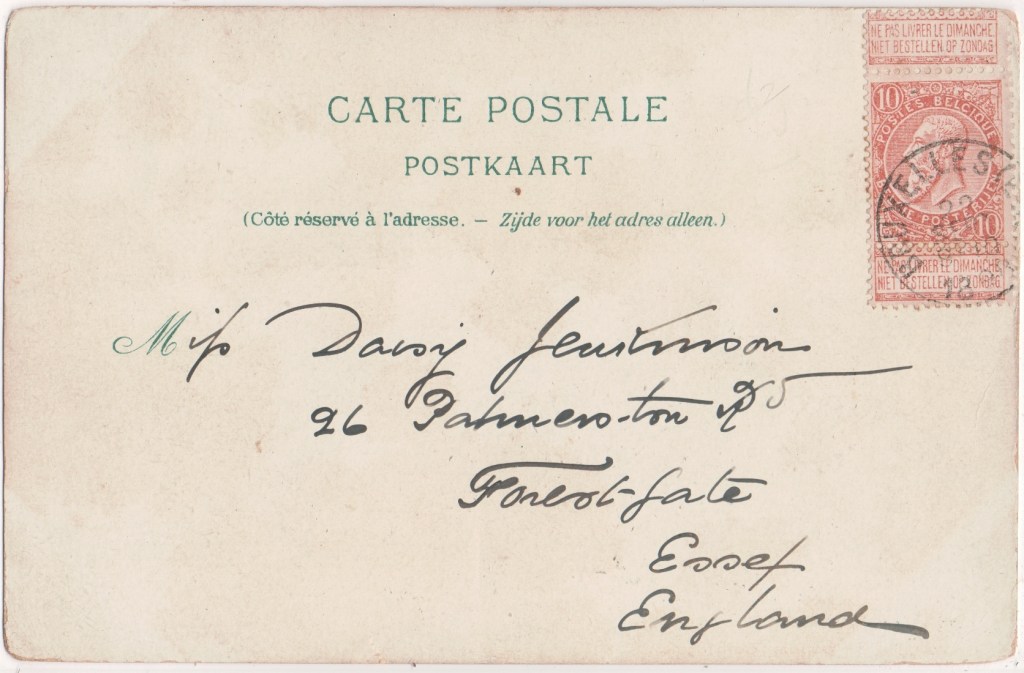 CARTE POSTALE
POSTKAART
(Côté réservé à l'adresse. — Zijde voor het adres alleen.)
NE PAS LIVRER LE DIMANCHE
NIET BESTELLEN OP ZONDAG
10
POSTES BELGIQUE
10
NE PAS LIVRER LE DIMANCHE
NIET BESTELLEN OP ZONDAG
Miss Daisy
26 Palmerston Rd
Forest Gate
Essex
England